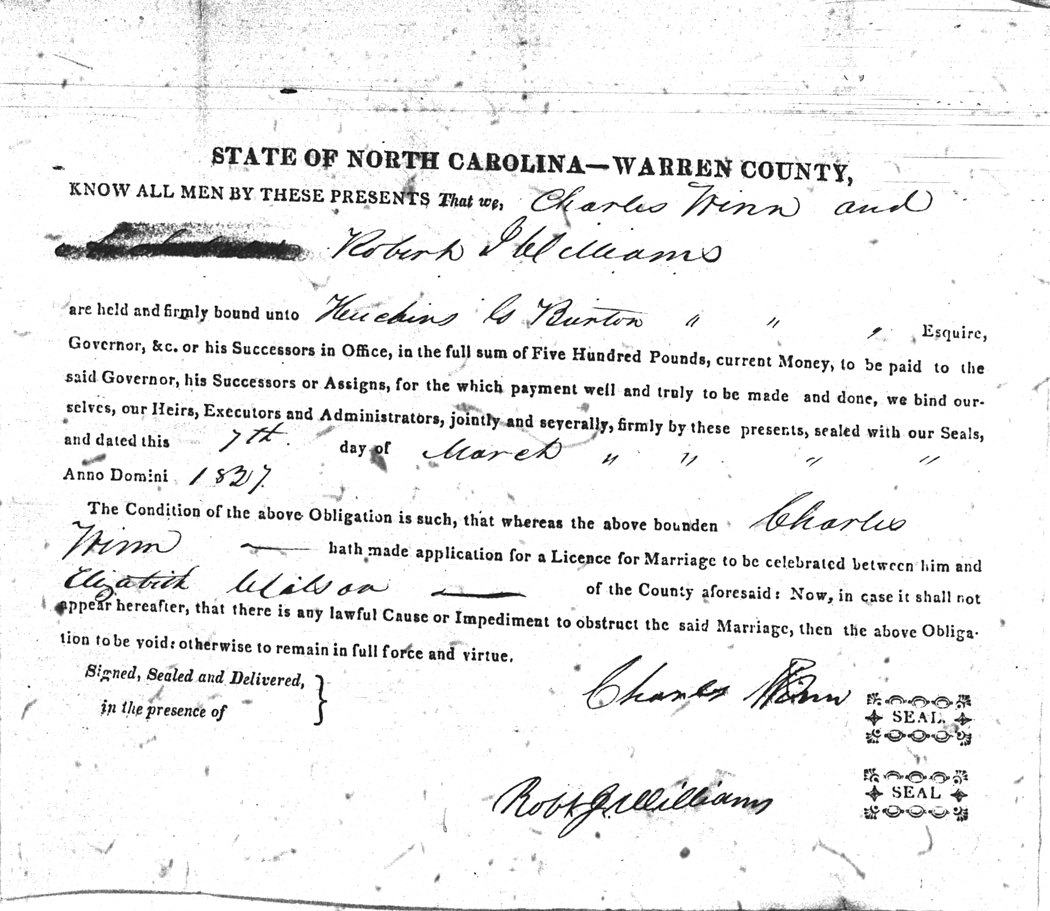 STATE OF NORTH CAROLINA—WARREN COUNTY,
KNOW ALL MEN BY THESE PRESENTS That we, Charles Winn and
Robert J Williams
are held and firmly bound unto Hutchins G Burton " " , Esquire,
Governor, &c. or his Successors in Office, in the full sum of Five Hundred Pounds, current Money, to be paid to the
said Governor, his Successors or Assigns, for the which payment well and truly to be made and done, we bind our-
selves, our Heirs, Executors and Administrators, jointly and severally, firmly by these presents, sealed with our Seals,
and dated this 7th. day of March " " " "
Anno Domini 1827.
The Condition of the above Obligation is such, that whereas the above bounden Charles
Winn — hath made application for a Licence for Marriage to be celebrated between him and
Elizabeth Wilson — of the County aforesaid: Now, in case it shall not
appear hereafter, that there is any lawful Cause or Impediment to obstruct the said Marriage, then the above Obliga-
tion to be void: otherwise to remain in full force and virtue.
Signed, Sealed and Delivered,
in the presence of
Charles Winn
SEAL.
Robt J. Williams
SEAL